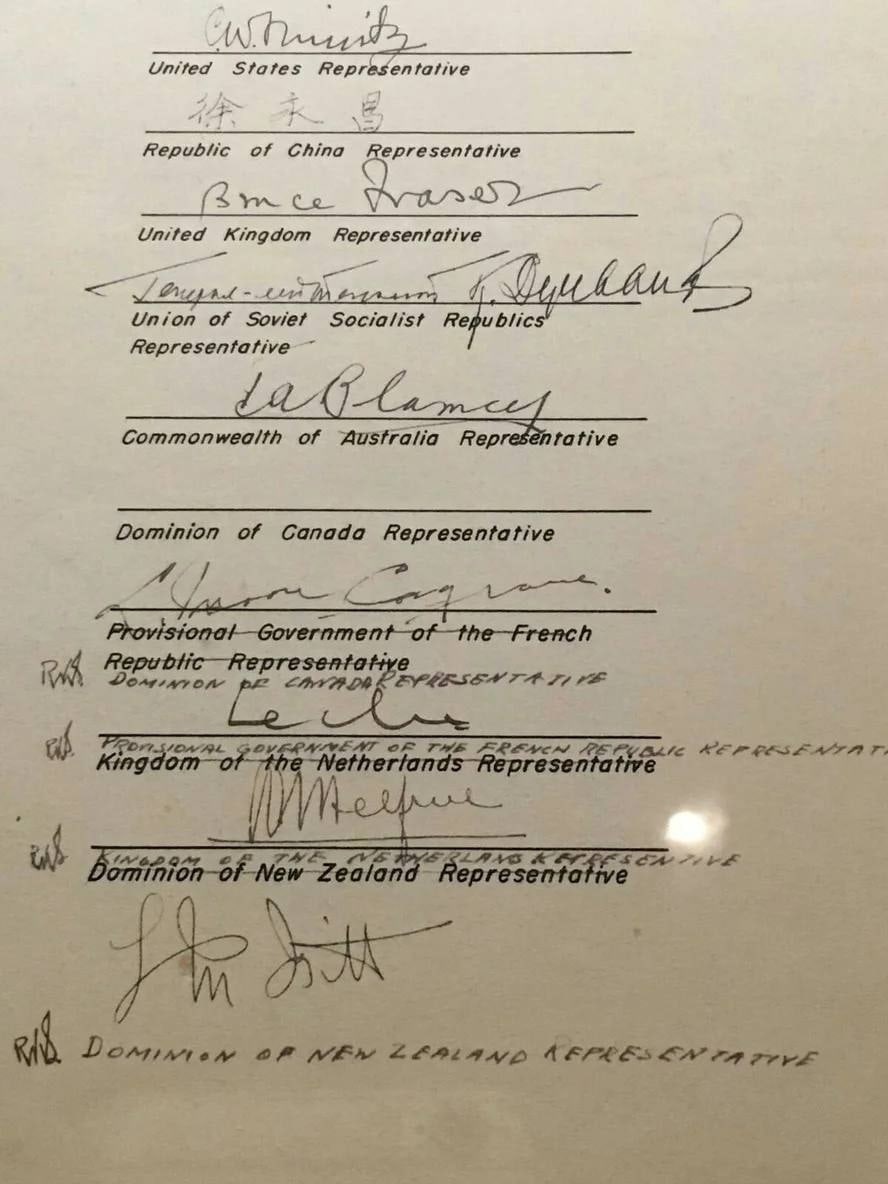 C.W. Nimitz
United States Representative
徐永昌
Republic of China Representative
Bruce Fraser
United Kingdom Representative
Генерал-лейтенант К. Деревянко
Union of Soviet Socialist Republics
Representative
T A Blamey
Commonwealth of Australia Representative
Dominion of Canada Representative
L. Moore Cosgrave.
Provisional Government of the French
Republic Representative
RKS DOMINION OF CANADA REPRESENTATIVE
Leclerc
RKS PROVISIONAL GOVERNMENT OF THE FRENCH REPUBLIC REPRESENTATI
Kingdom of the Netherlands Representative
Helfrich
RKS KINGDOM OF THE NETHERLANDS REPRESENTATIVE
Dominion of New Zealand Representative
L M Isitt
RKS DOMINION OF NEW ZEALAND REPRESENTATIVE